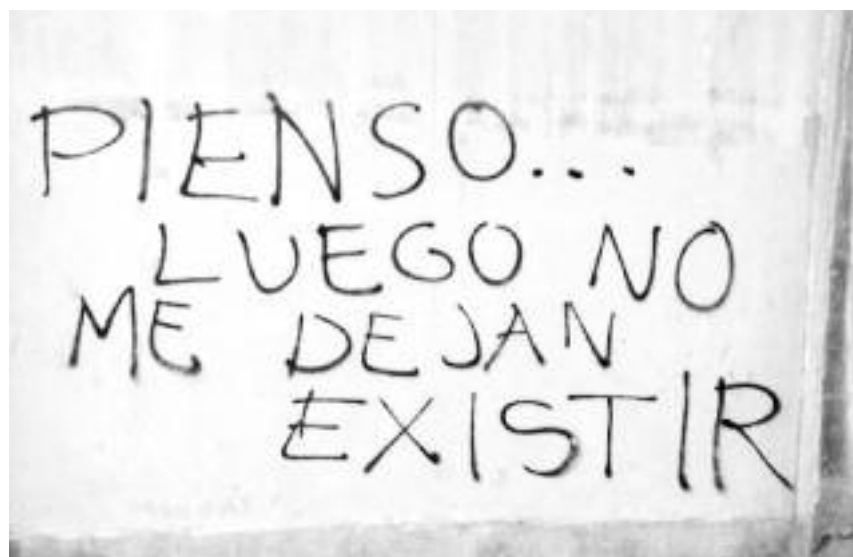 PIENSO...
LUEGO NO
ME DEJAN
EXISTIR